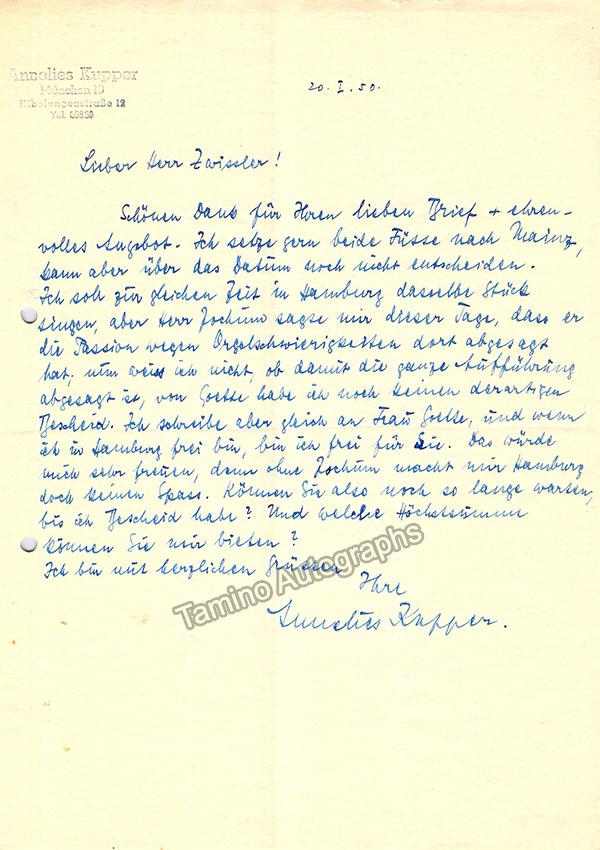 Annelies Kupper
München 19
Nibelungenstraße 12
Tel. 60850
20. I. 50.
Lieber Herr Zwissler!
Schönen Dank für Ihren lieben Brief + ehren-
volles Angebot. Ich setze gern beide Füsse nach Mainz,
kann aber über das Datum noch nicht entscheiden.
Ich soll zur gleichen Zeit in Hamburg dasselbe Stück
singen, aber Herr Jochum sagte mir dieser Tage, dass er
die Passion wegen Orgelschwierigkeiten dort abgesagt
hat; nun weiss ich nicht, ob damit die ganze Aufführung
abgesagt ist, von Goette habe ich noch keinen derartigen
Bescheid. Ich schreibe aber gleich an Frau Goette, und wenn
ich in Hamburg frei bin, bin ich frei für Sie. Das würde
mich sehr freuen, denn ohne Jochum macht mir Hamburg
doch keinen Spass. Können Sie also noch so lange warten,
bis ich Bescheid habe? Und welche Höchstsumme
können Sie mir bieten?
Ich bin mit herzlichen Grüssen
Ihre
Annelies Kupper.
Tamino Autographs